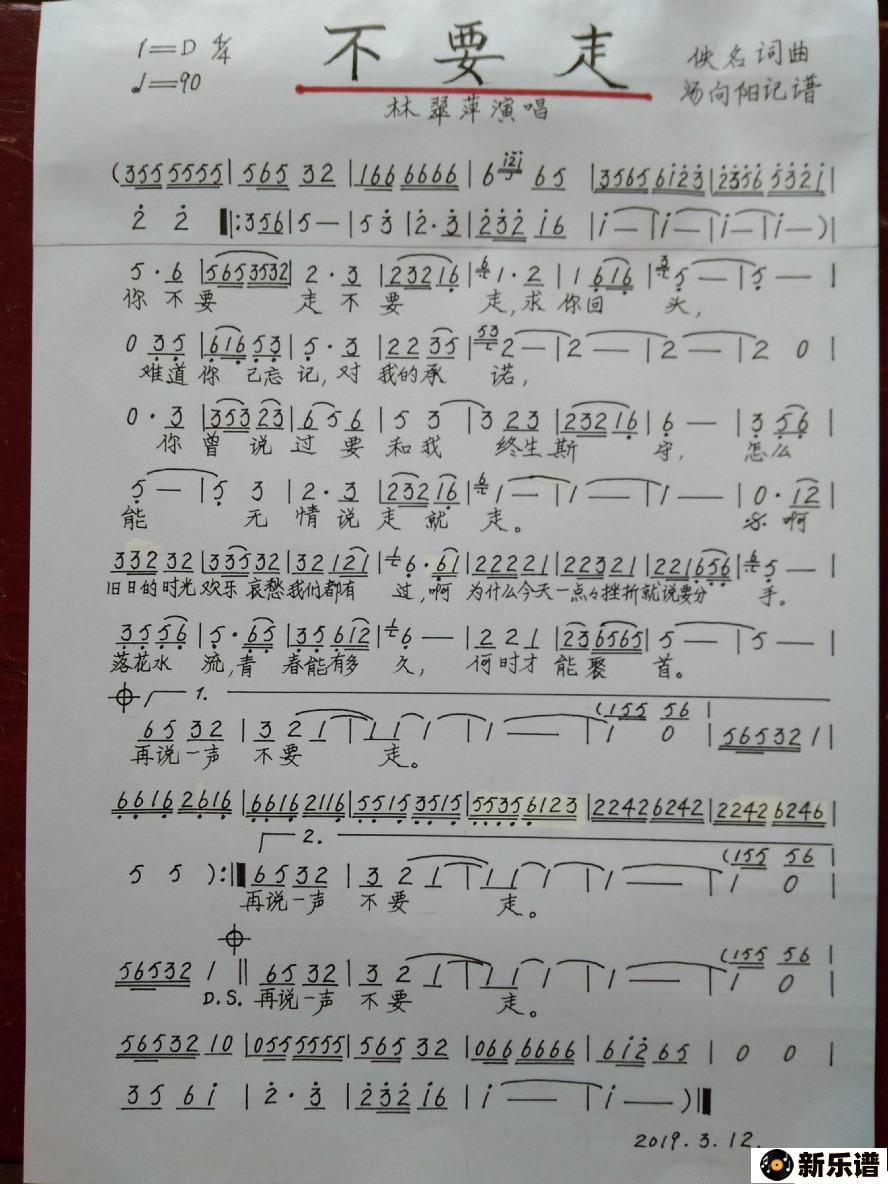 不要走
1=D 2/4
♩=90
佚名词曲
汤向阳记谱
林翠萍演唱
(355 5555 | 565 32 | 166 6666 | 6 i2i 65 | 3565 6i23 | 2356 532i |
2 2 ‖: 356 | 5 — | 5 3 | 2· 3 | 232 i6 | i — | i — | i — | i — ) |
5· 6 | 565 3532 | 2· 3 | 232 16 | 6 1· 2 | 1 616 | 3 5 — | 5 — |
你不要 走不要 走,求你回 头,
0 35 | 616 53 | 5· 3 | 22 35 | 53 2 — | 2 — | 2 — | 2 0 |
难道你 己忘记,对 我的承 诺,
0· 3 | 353 23 | 6 5 6 | 5 3 | 3 23 | 232 16 | 6 — | 3 56 |
你曾说过要和我 终生斯 守, 怎么
5 — | 5 3 | 2· 3 | 232 16 | 6 1 — | 1 — | 1 — | 0· 12 |
能 无情说走就 走。 啊
332 32 | 335 32 | 32 121 | 1 6· 61 | 2222 1 | 2232 1 | 221 655 | 6 5 — |
旧日的时光欢乐哀愁我们都有 过,啊 为什么今天一点々挫折就说要分 手。
35 56 | 5· 65 | 35 612 | 1 6 — | 2 2 1 | 23 6565 | 5 — | 5 — |
落花水 流,青 春能有多 久, 何时才能聚 首。
1.
(155 56 |
65 32 | 3 2 1 | 1 1 1 | 1 — | 1 0 | 56532 1 |
再说一声 不要 走。
6616 2616 | 6616 2116 | 5515 3515 | 5535 6123 | 2242 6242 | 2242 6246 |
2.
(155 56 |
5 5 ):‖ 65 32 | 3 2 1 | 1 1 1 | 1 — | 1 0 |
再说一声 不要 走。
(155 56 |
56532 1 ‖ 65 32 | 3 2 1 | 1 1 1 | 1 — | 1 0 |
D.S. 再说一声 不要 走。
56532 10 | 055 5555 | 565 32 | 066 6666 | 6i2 65 | 0 0 |
35 6i | 2· 3 | 232 i6 | i — | i — )‖
2019.3.12.
新乐谱